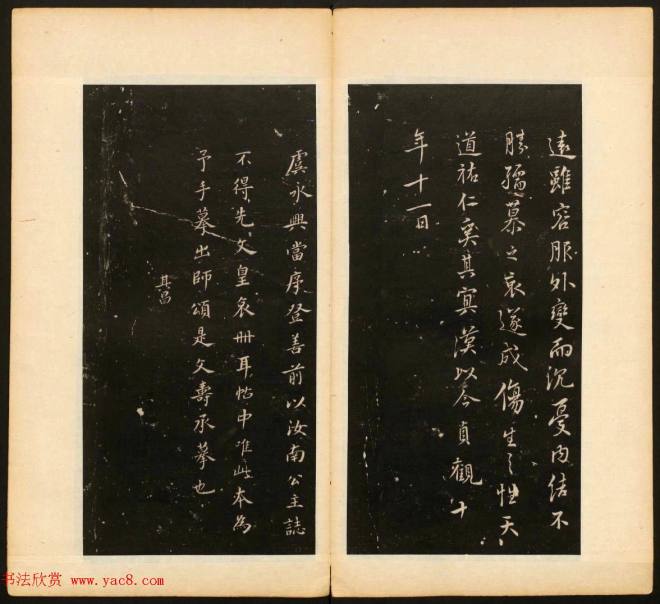 遠雖容服外變而沉憂內結不
勝孺慕之哀遂成傷生之性天
道祐仁奚其冥漠以今貞觀十
年十一日
虞永興當序登善前以汝南公主誌
不得先文皇哀冊耳帖中准此本為
予手摹出師頌是文壽承摹也
其昌
书法欣赏 www.yac8.com